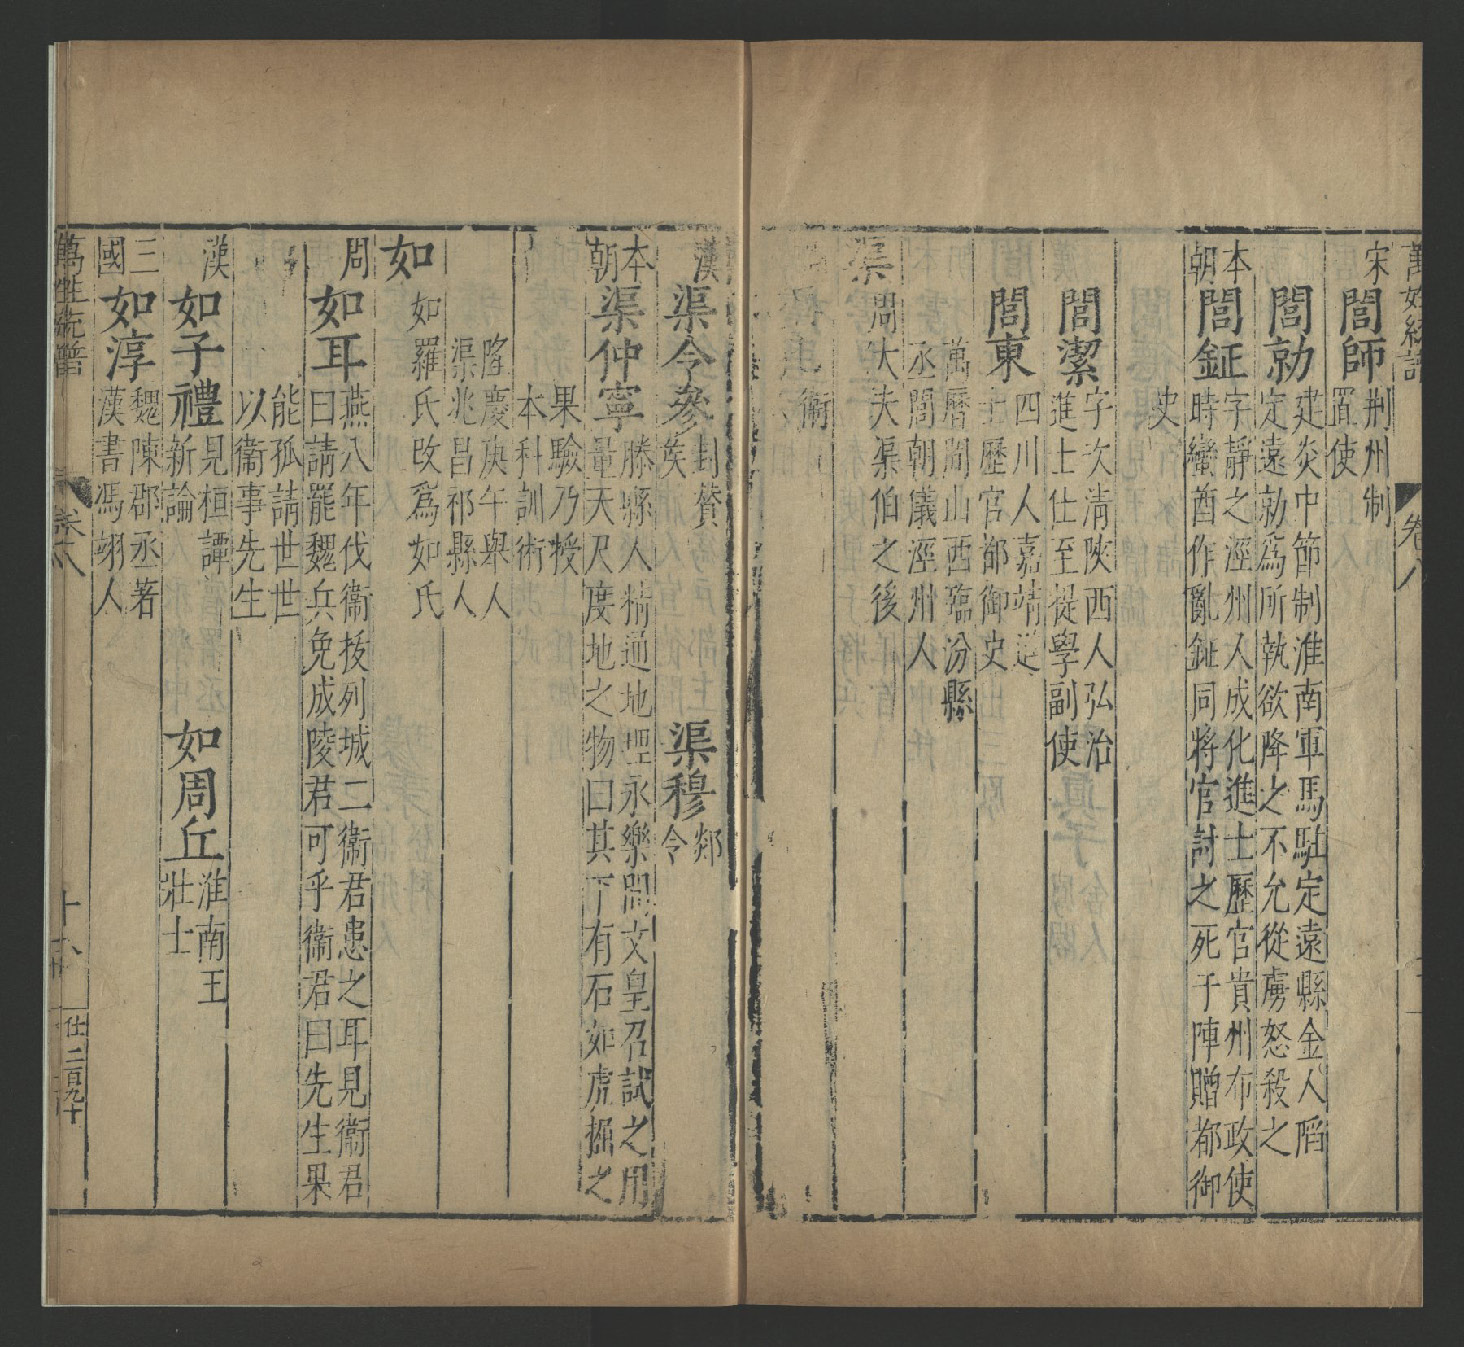 萬姓統譜
卷八
宋
閭師
荆州制
置使
閭勍
建炎中節制淮南軍馬駐定遠縣金人䧟
定遠勍爲所執欲降之不允從虜怒殺之
本
朝
閭鉦
字靜之涇州人成化進士歷官貴州布政使
時蠻酋作亂鉦同將官討之死于陣贈都御
史
閭潔
字次清陝西人弘治
進士仕至提學副使
閭東
四川人嘉靖進
士歷官都御史
萬曆間山西臨汾縣
丞閭朝儀涇州人
渠
周大夫渠伯之後
衞
漢
渠令參
封贊
侯
渠穆
郯
令
本
朝
渠仲寧
滕縣人精通地理永樂間文皇召試之用
量天尺度地之物曰其下有石如虎掘之
果驗乃授
本科訓術
隆慶庚午舉人
渠兆昌祁縣人
如
如羅氏改爲如氏
周
如耳
燕八年伐衞拔列城二衞君患之耳見衞君
曰請罷魏兵免成陵君可乎衞君曰先生果
能孤請世世
以衞事先生
漢
如子禮
見桓譚
新論
如周丘
淮南王
壯士
三
國
如淳
魏陳郡丞著
漢書馮翊人
萬姓統譜
卷八
十八
仕二百九十